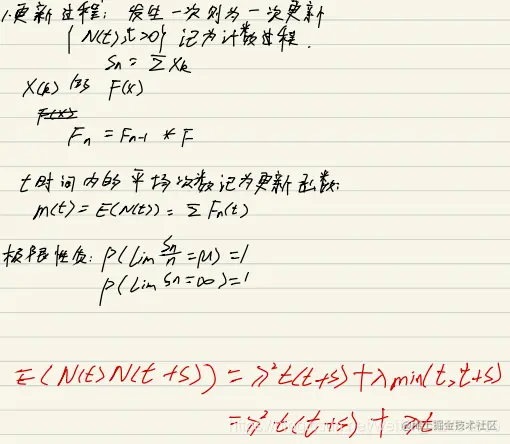 1.更新过程: 发生一次则为一次更新
{N(t), t>0} 记为计数过程.
Sn = ΣXk
X(k) 的 F(x)
Fn = Fn-1 * F
t时间内的平均次数记为更新函数:
m(t) = E(N(t)) = ΣFn(t)
极限性质: P(lim Sn/n = μ) = 1
P(lim Sn = ∞) = 1
E(N(t)N(t+s)) = λ²t(t+s) + λmin(t, t+s)
= λ²t(t+s) + λt
@稀土掘金技术社区